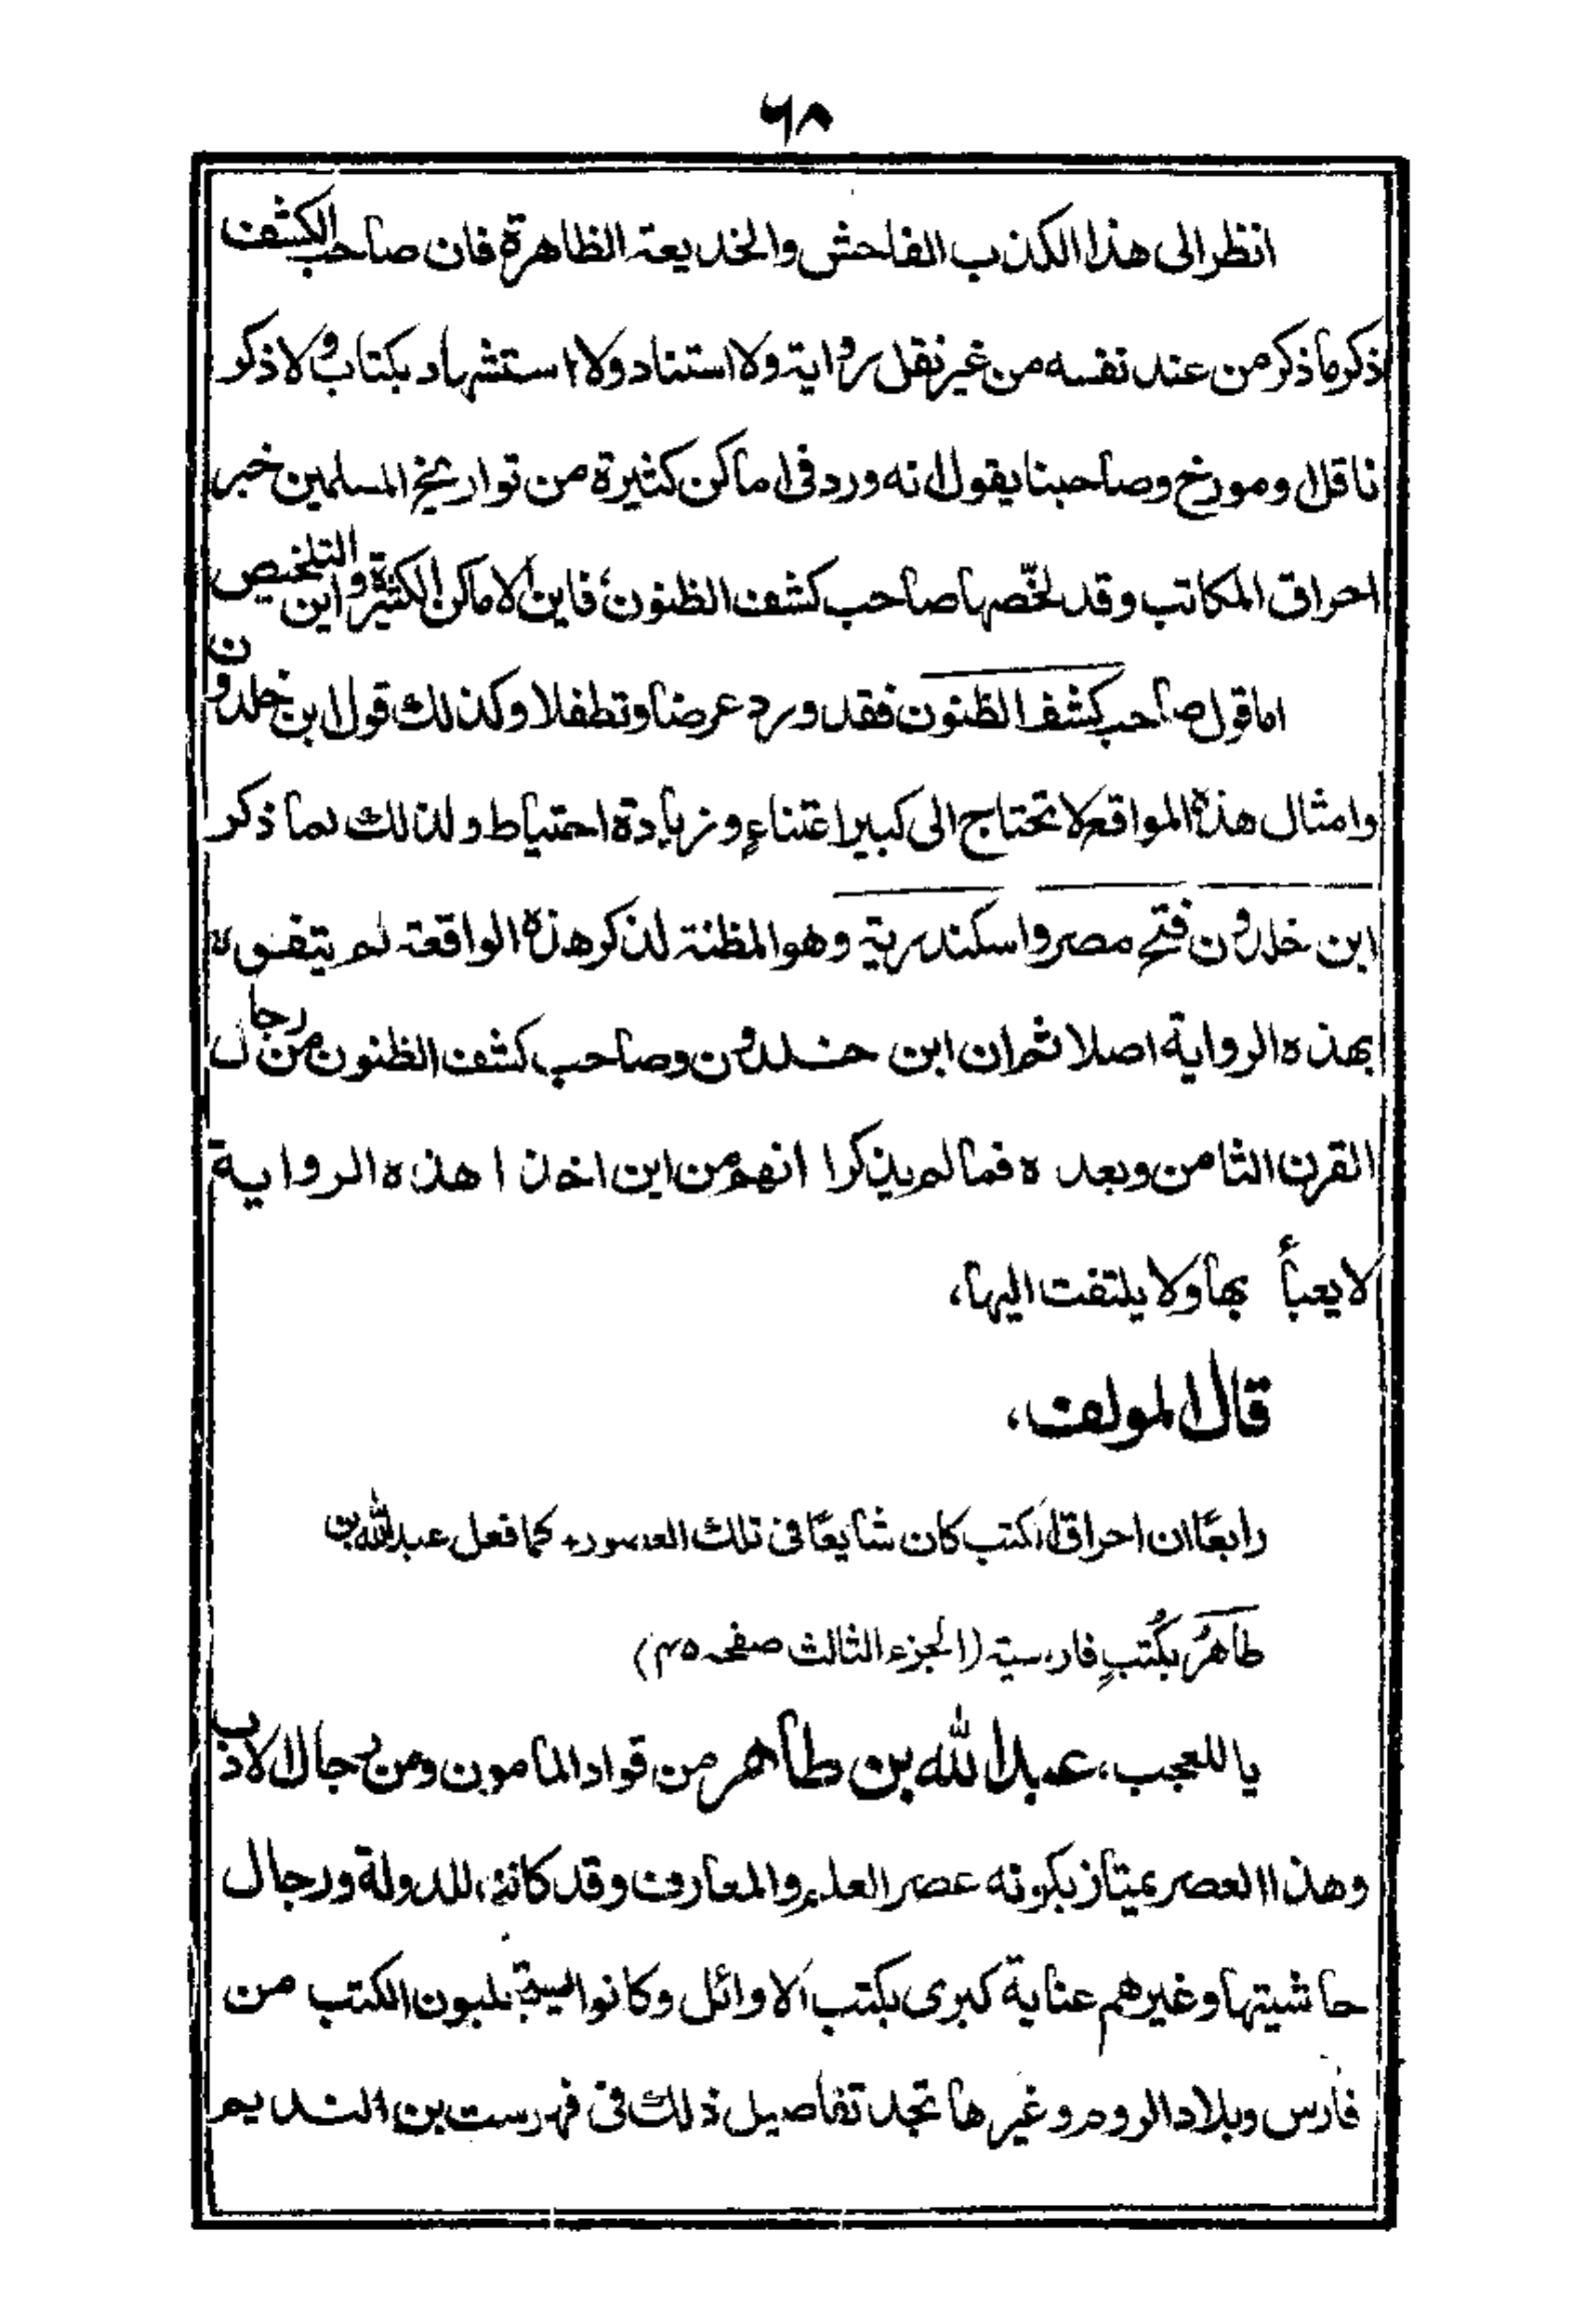 ٦٨
انظر الى هذا الكذب الفاحش والخديعة الظاهرة فان صاحب الكشف
ذكر ما ذكر من عند نفسه من غير نقل رواية ولا استناد ولا استشهاد بكتاب ولا ذكر
ناقل او مورخ وصاحبنا يقول انه ورد فى اماكن كثيرة من تواريخ المسلمين خبر
احراق المكاتب وقد لخّصها صاحب كشف الظنون، فاين الاماكن الكثيرة واين التلخيص
اما قول صاحب كشف الظنون فقد ورد عرضا وتطفلا وكذلك قول ابن خلدون
وامثال هذه المواقع لا تحتاج الى كبير اعتناءٍ وزيادة احتياط ولذلك لما ذكر
ابن خلدون فتح مصر واسكندرية وهو المظنة لذكر هذه الواقعة لم يتفوه
بهذه الرواية اصلا ثم ان ابن خلدون وصاحب كشف الظنون من رجال
القرن الثامن وبعده فما لم يذكرا انهم من اين اخذا هذه الرواية
لا يعبأ بها ولا يلتفت اليها،
قال المولف،
رابعًا ان احراق الكتب كان شايعًا فى تلك العصور، كما فعل عبد الله بن
طاهرُ بكُتبٍ فارسية (الجزء الثالث صفحه ٤٥)
يا للعجب، عبد الله بن طاهر من قواد المامون ومن رجال الادب
وهذا العصر يمتاز بكونه عصر العلم والمعارف وقد كانت للدولة ورجال
حاشيتها وغيرهم عناية كبرى بكتب الاوائل وكانوا يجلبون الكتب من
فارس وبلاد الروم وغيرها تجد تفاصيل ذلك فى فهرست بن النديم